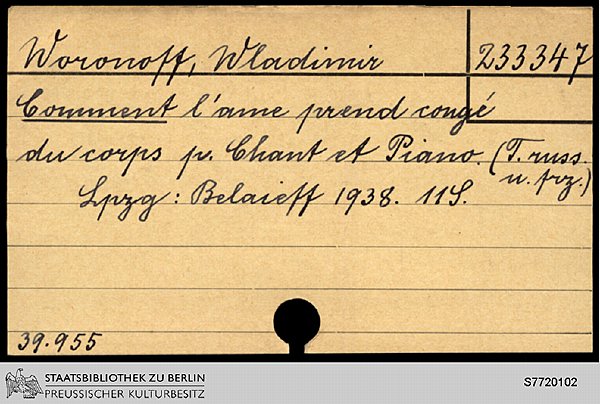 Woronoff, Wladimir
233347
Comment l'ame prend congé
du corps p. Chant et Piano. (T. russ.
u. frz.)
Lpzg: Belaieff 1938. 11 S.
39.955
STAATSBIBLIOTHEK ZU BERLIN
PREUSSISCHER KULTURBESITZ
S7720102